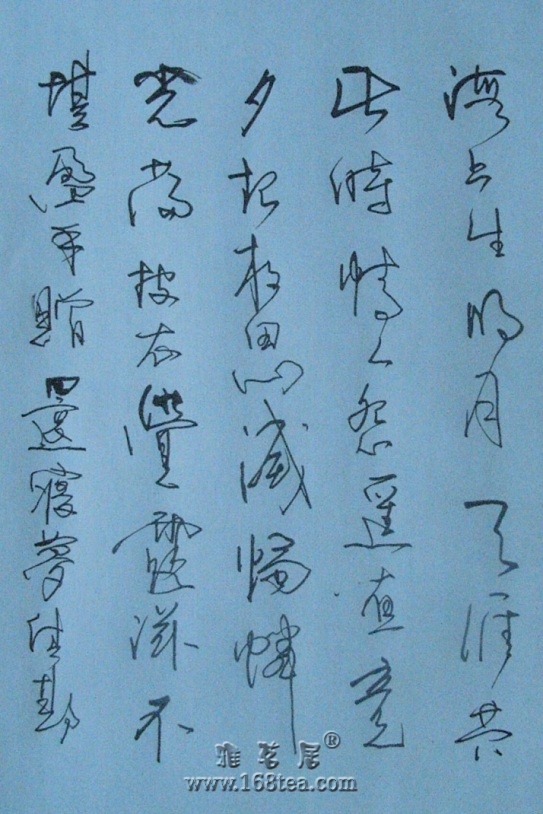 海上生明月天涯共
此時情人怨遥夜竟
夕起相思滅燭憐
光滿披衣覺露滋不
堪盈手贈還寢夢佳期
雅茗居®
www.168tea.com